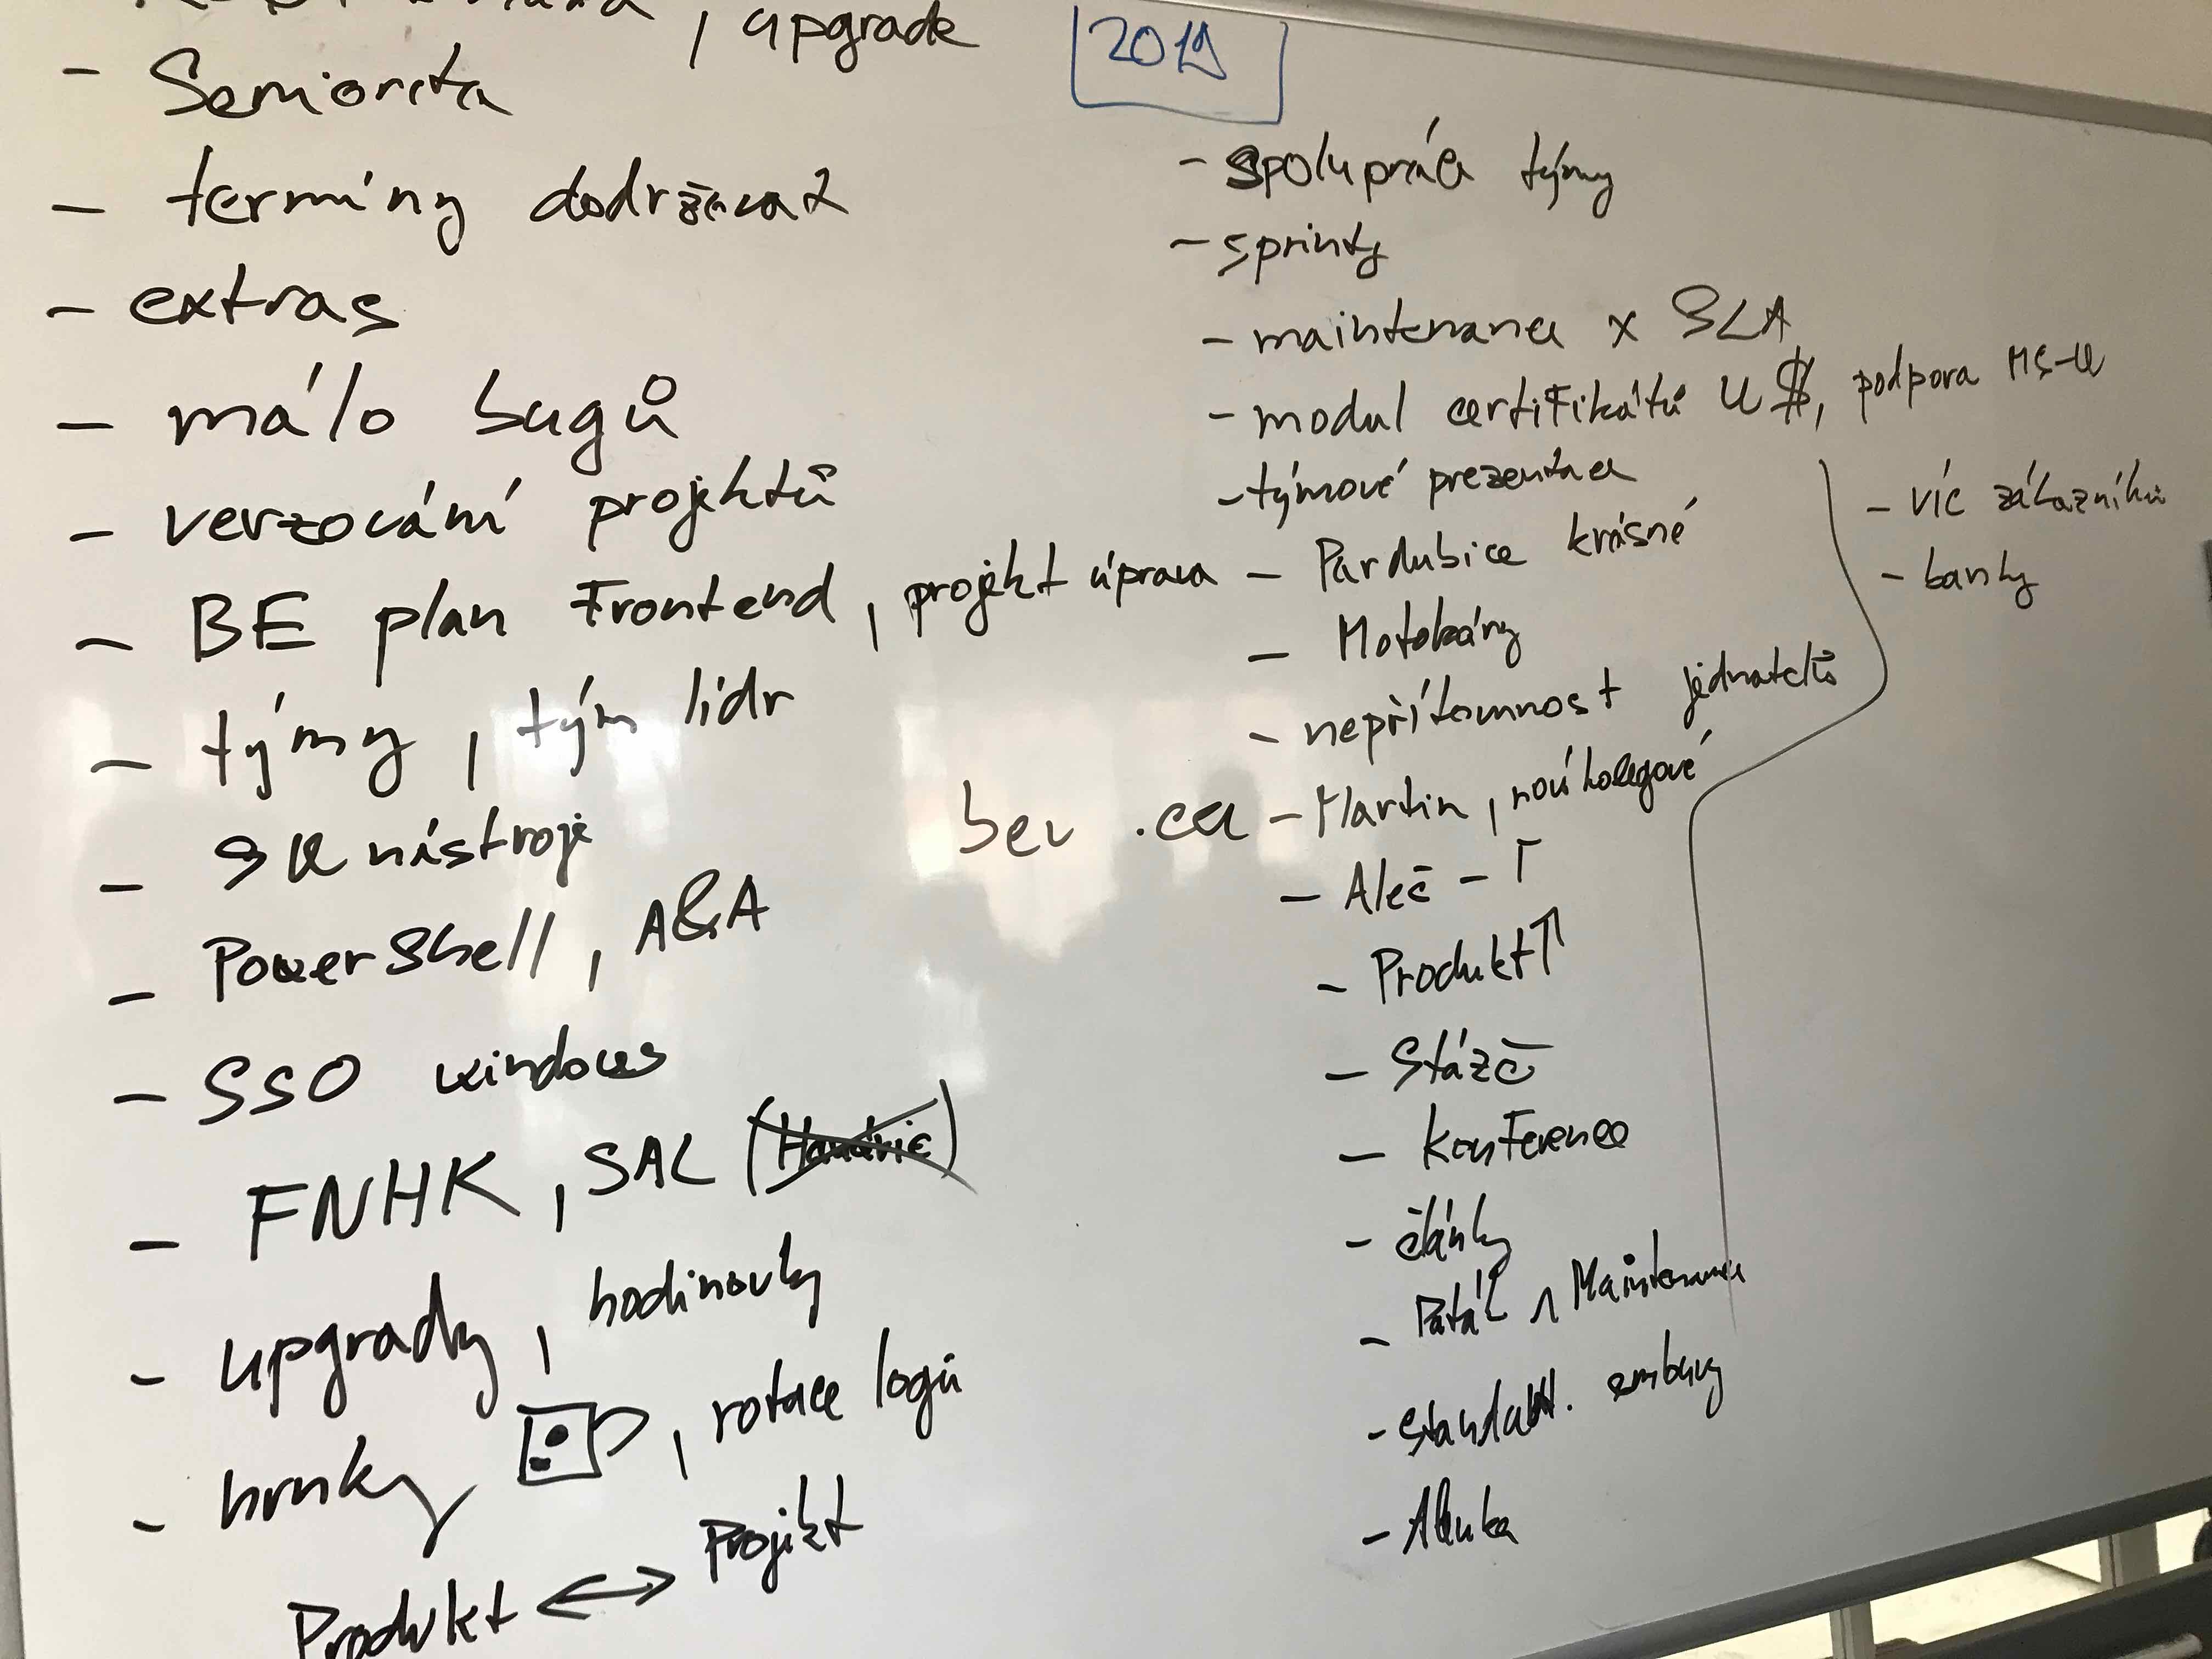 , upgrade
2019
- Seniorita
- termíny dodržovat
- extras
- málo bugů
- verzování projektů
- BE plan Frontend, projekt úprava
- týmy, tým lídr
- nástroje
- PowerShell, A&A
- SSO windows
- FNHK, SAL
- upgrady, hodinovky
- hrnky, rotace logů
Produkt ↔ Projekt
- spolupráce týmy
- sprinty
- maintenance x SLA
- modul certifikátů U$, podpora
- týmové prezentace
- Pardubice krásné
- Motokáry
- nepřítomnost jednatelů
- Martin, noví kolegové
- Aleč -
- Produkt↑
- Stáže
- Konference
- články
- Maintenance
- standard. smlouvy
- Alenka
- víc zákazníků
- banky